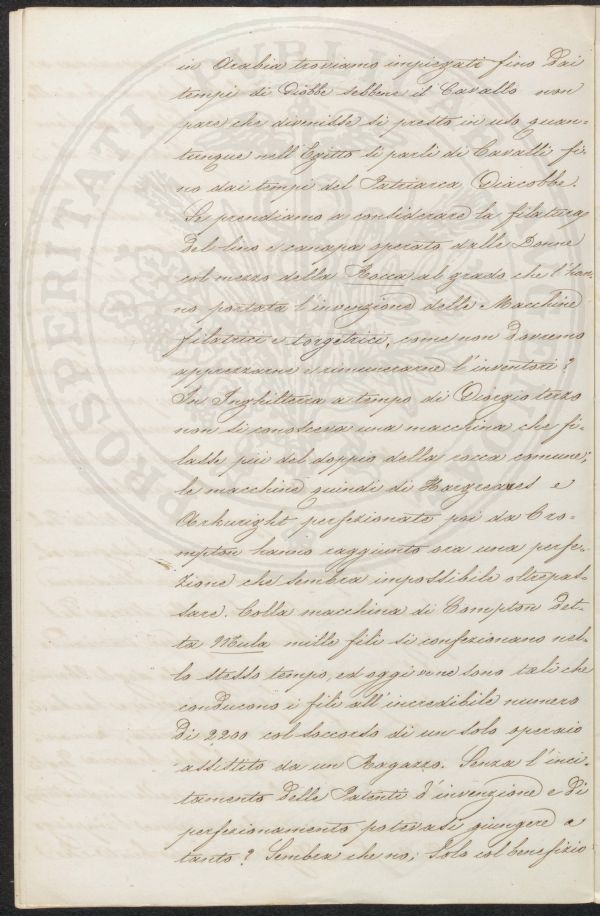 in Arabia troviamo impiegati fino dai
tempi di Giobbe sebbene il Cavallo non
pare che divenisse sì presto in uso quan-
tunque nell'Egitto si parli di Cavalli fi-
no dai tempi del Patriarca Giacobbe.
Se prendiamo a considerare la filatura
del lino e canapa operato dalle Donne
col mezzo della Rocca al grado che l'han-
no portata l'invenzione delle Macchine
filatrici e torgetrici, come non dovremo
apprezzarne e rimunerarne l'inventori?
In Inghilterra a tempo di Giorgio terzo
non si conosceva una macchina che fi-
lasse più del doppio della rocca comune;
le macchine quindi di Hargreaves e
Arkwright perfezionate poi da Cro-
mpton hanno raggiunto ora una perfe-
zione che sembra impossibile oltrepas-
sare. Colla macchina di Compton det-
ta Mula mille fili si confezionano nel-
lo stesso tempo, ed oggi ve ne sono tali che
conducono i fili all'incredibile numero
di 2200 col soccorso di un solo operaio
assistito da un Ragazzo. Senza l'inci-
tamento delle Patenti d'invenzione e di
perfezionamento potevasi giungere a
tanto? Sembra che no; Solo col benefizio
PROSPERITATI PUBLICAE